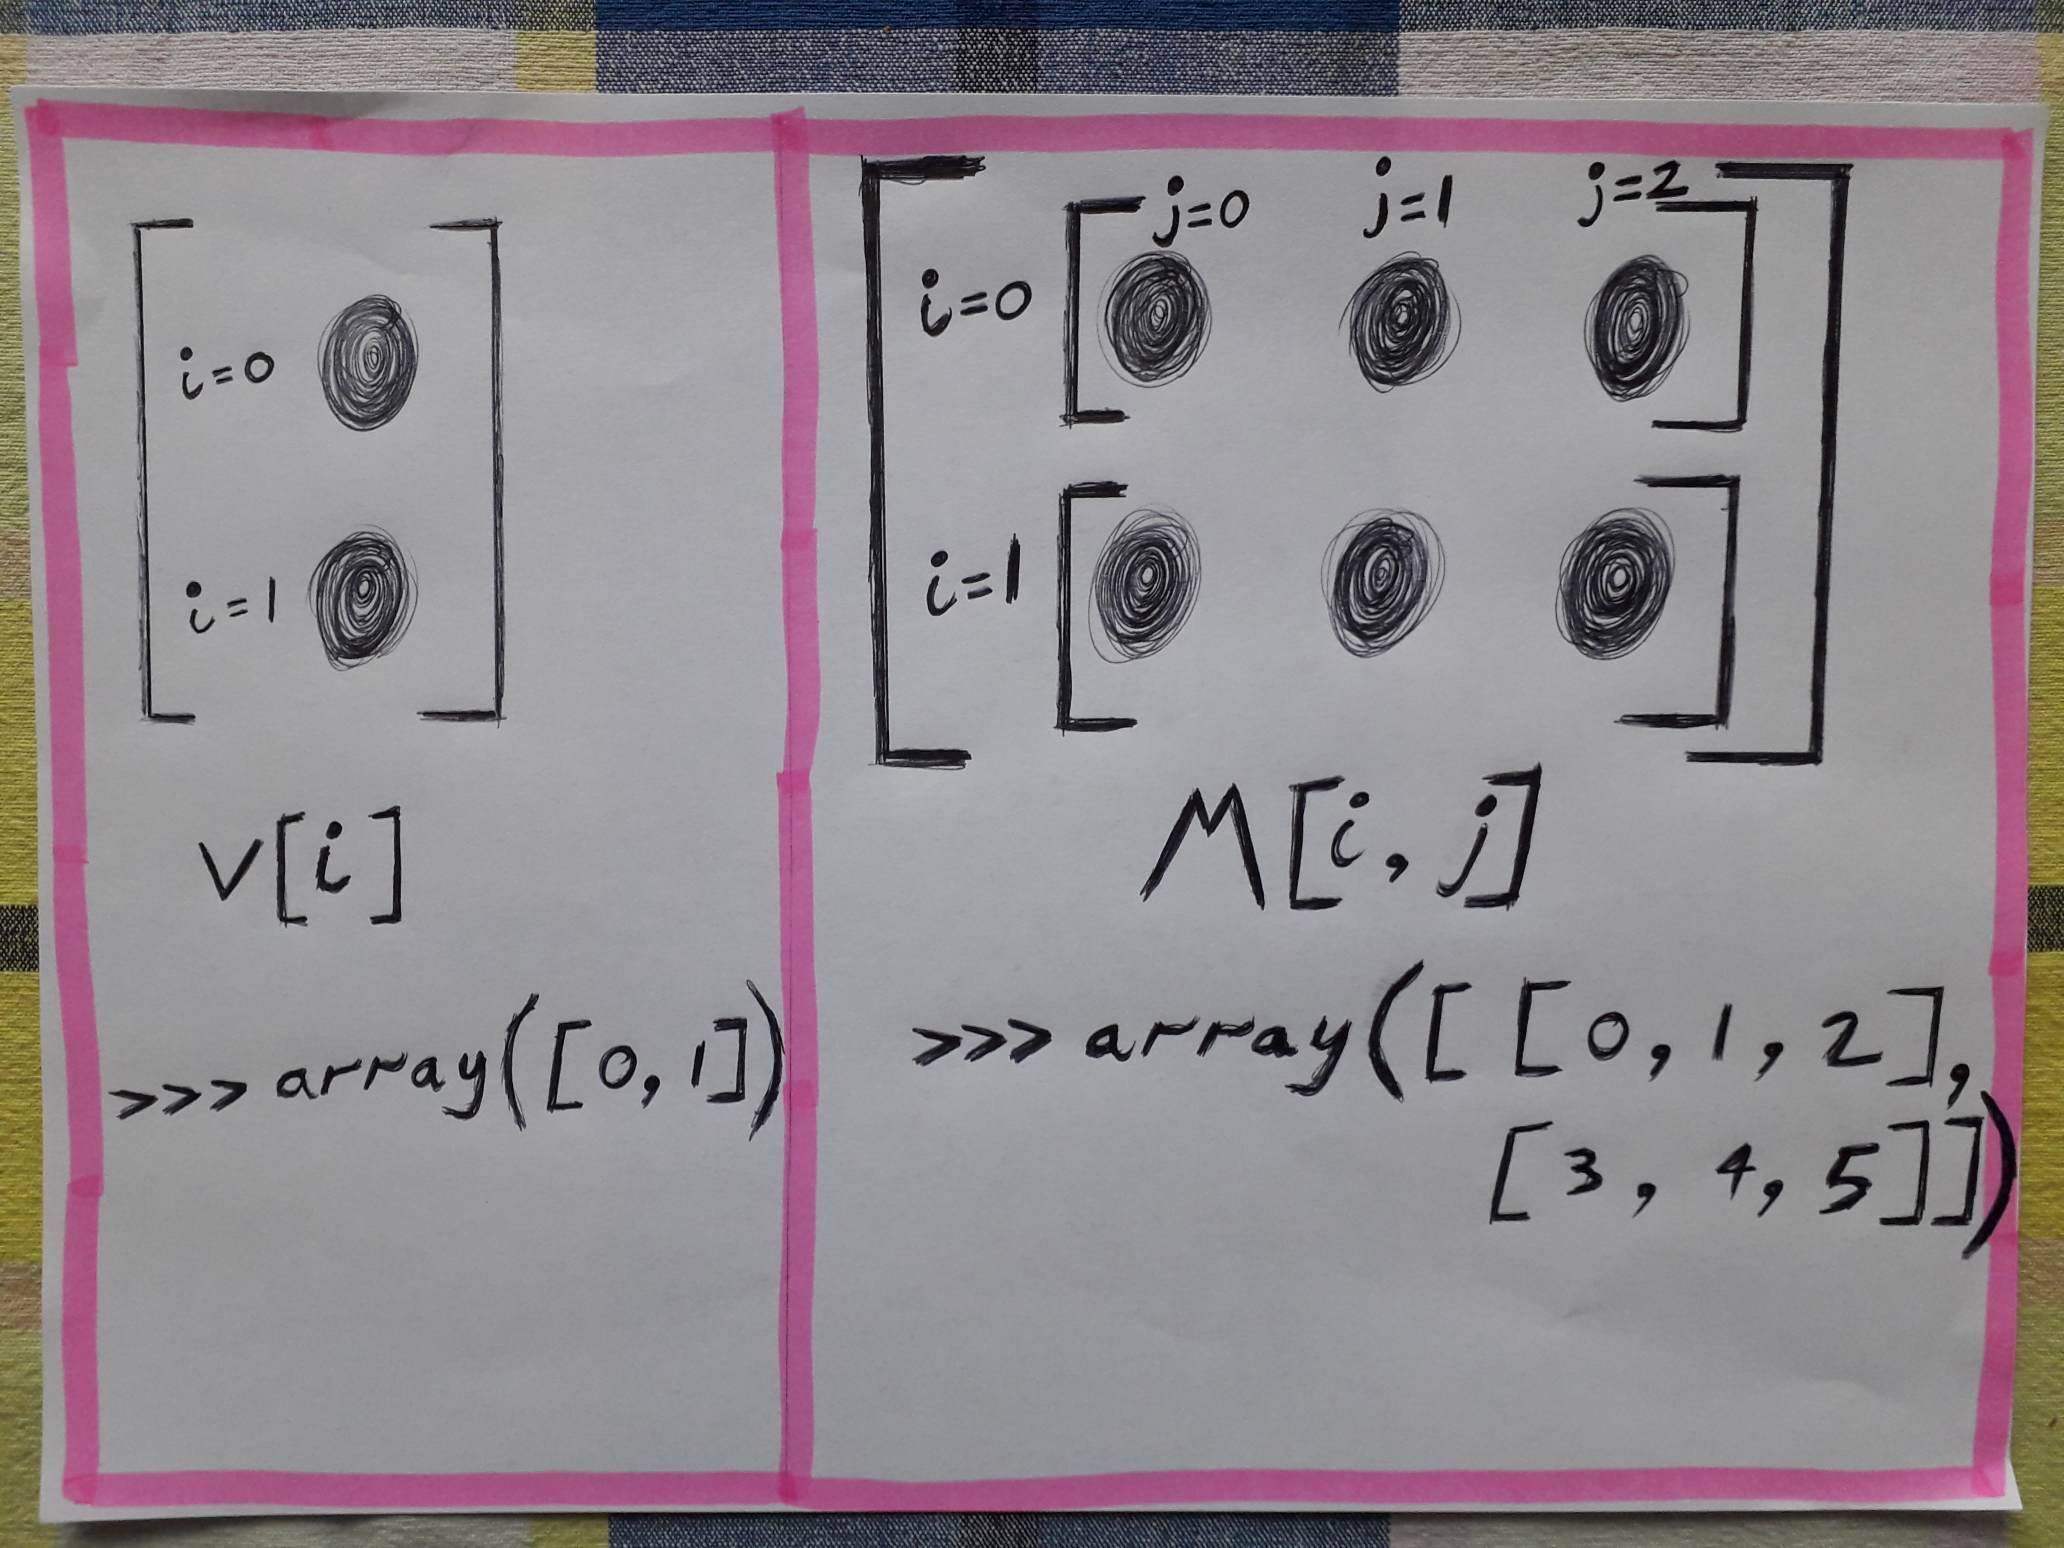 i=0
i=1
V[i]
>>> array([0, 1])
j=0 j=1 j=2
i=0
i=1
M[i, j]
>>> array([ [0, 1, 2],
[3, 4, 5]])